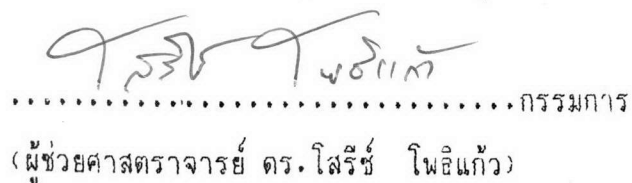 โสรีช์ โพธิแก้ว
................................กรรมการ
(ผู้ช่วยศาสตราจารย์ ดร.โสรีช์ โพธิแก้ว)